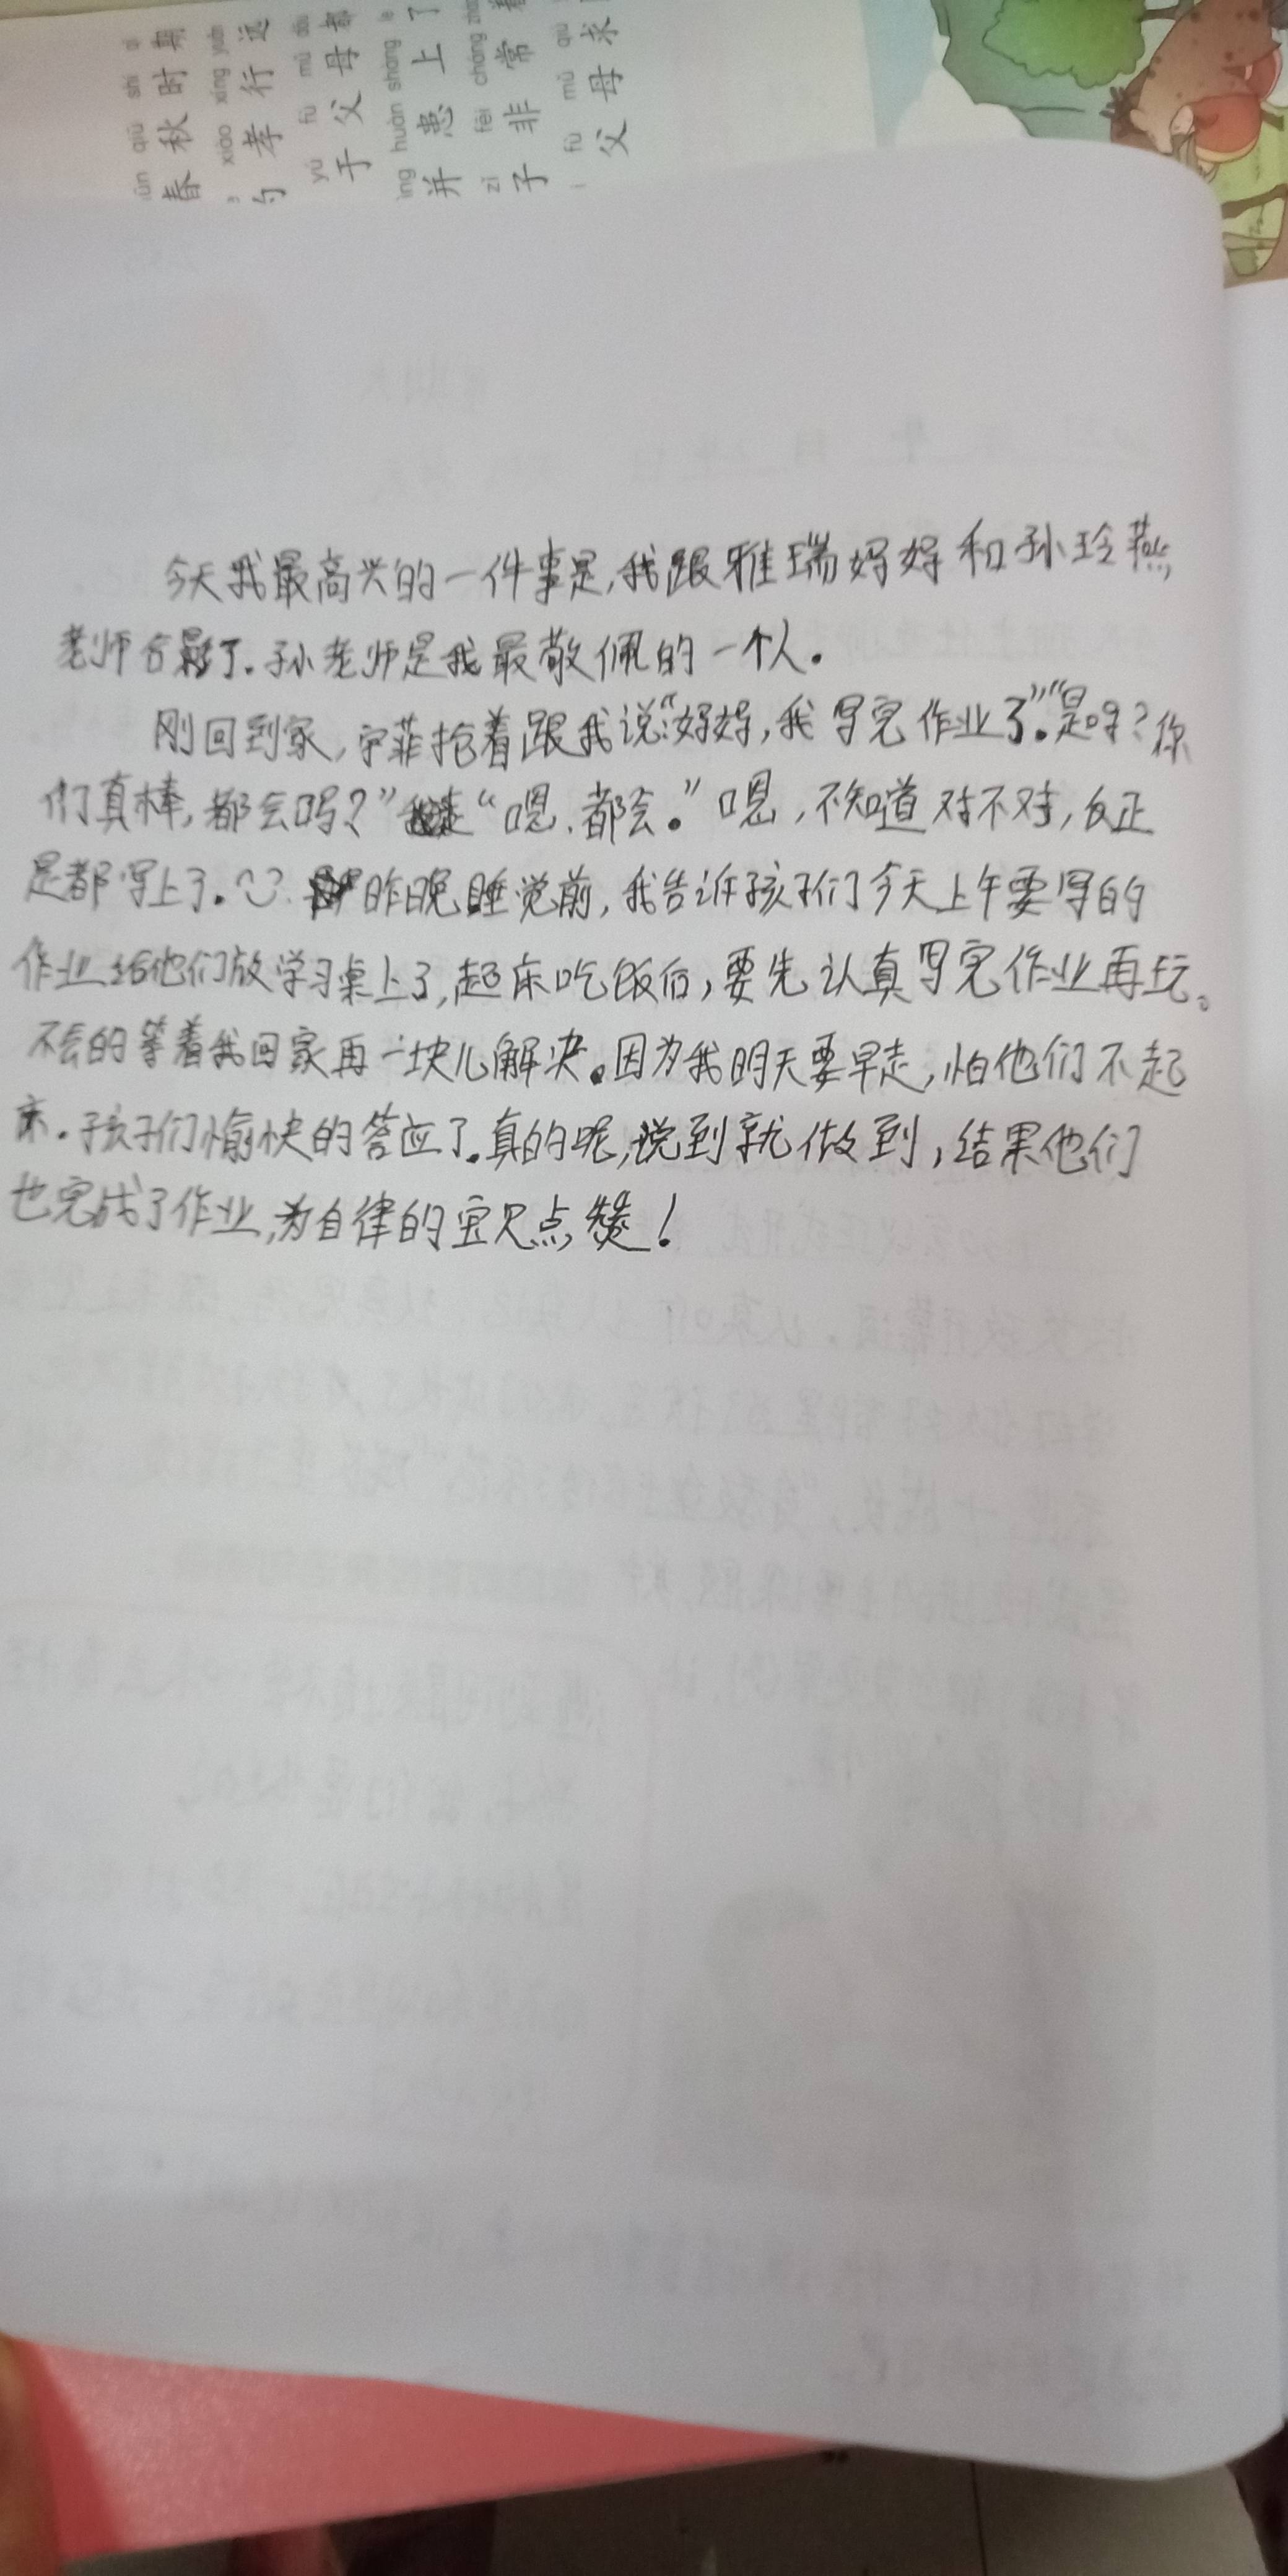 春秋时期
孝行远
于父母都
并患上了
子非常着
父母求
今天我最高兴的一件事是,我跟雅瑞妈妈和孙玲燕
老师合影了.孙老师是我最敬佩的一个人.
刚回到家,宇菲抢着跟我说:“妈妈,我写完作业了.”“是吗?你
们真棒,都会吗?”“嗯.都会.”嗯,不知道对不对,反正
是都写上了.昨晚睡觉前,我告诉孩子们今天上午要写的
作业给他们放学习桌上了,起床吃饭后,要先认真写完作业再玩。
不会的等着我回家再一块儿解决.因为我明天要早走,怕他们不起
床.孩子们愉快的答应了.真的呢,说到就做到,结果他们
也完成了作业,为自律的宝贝点赞!